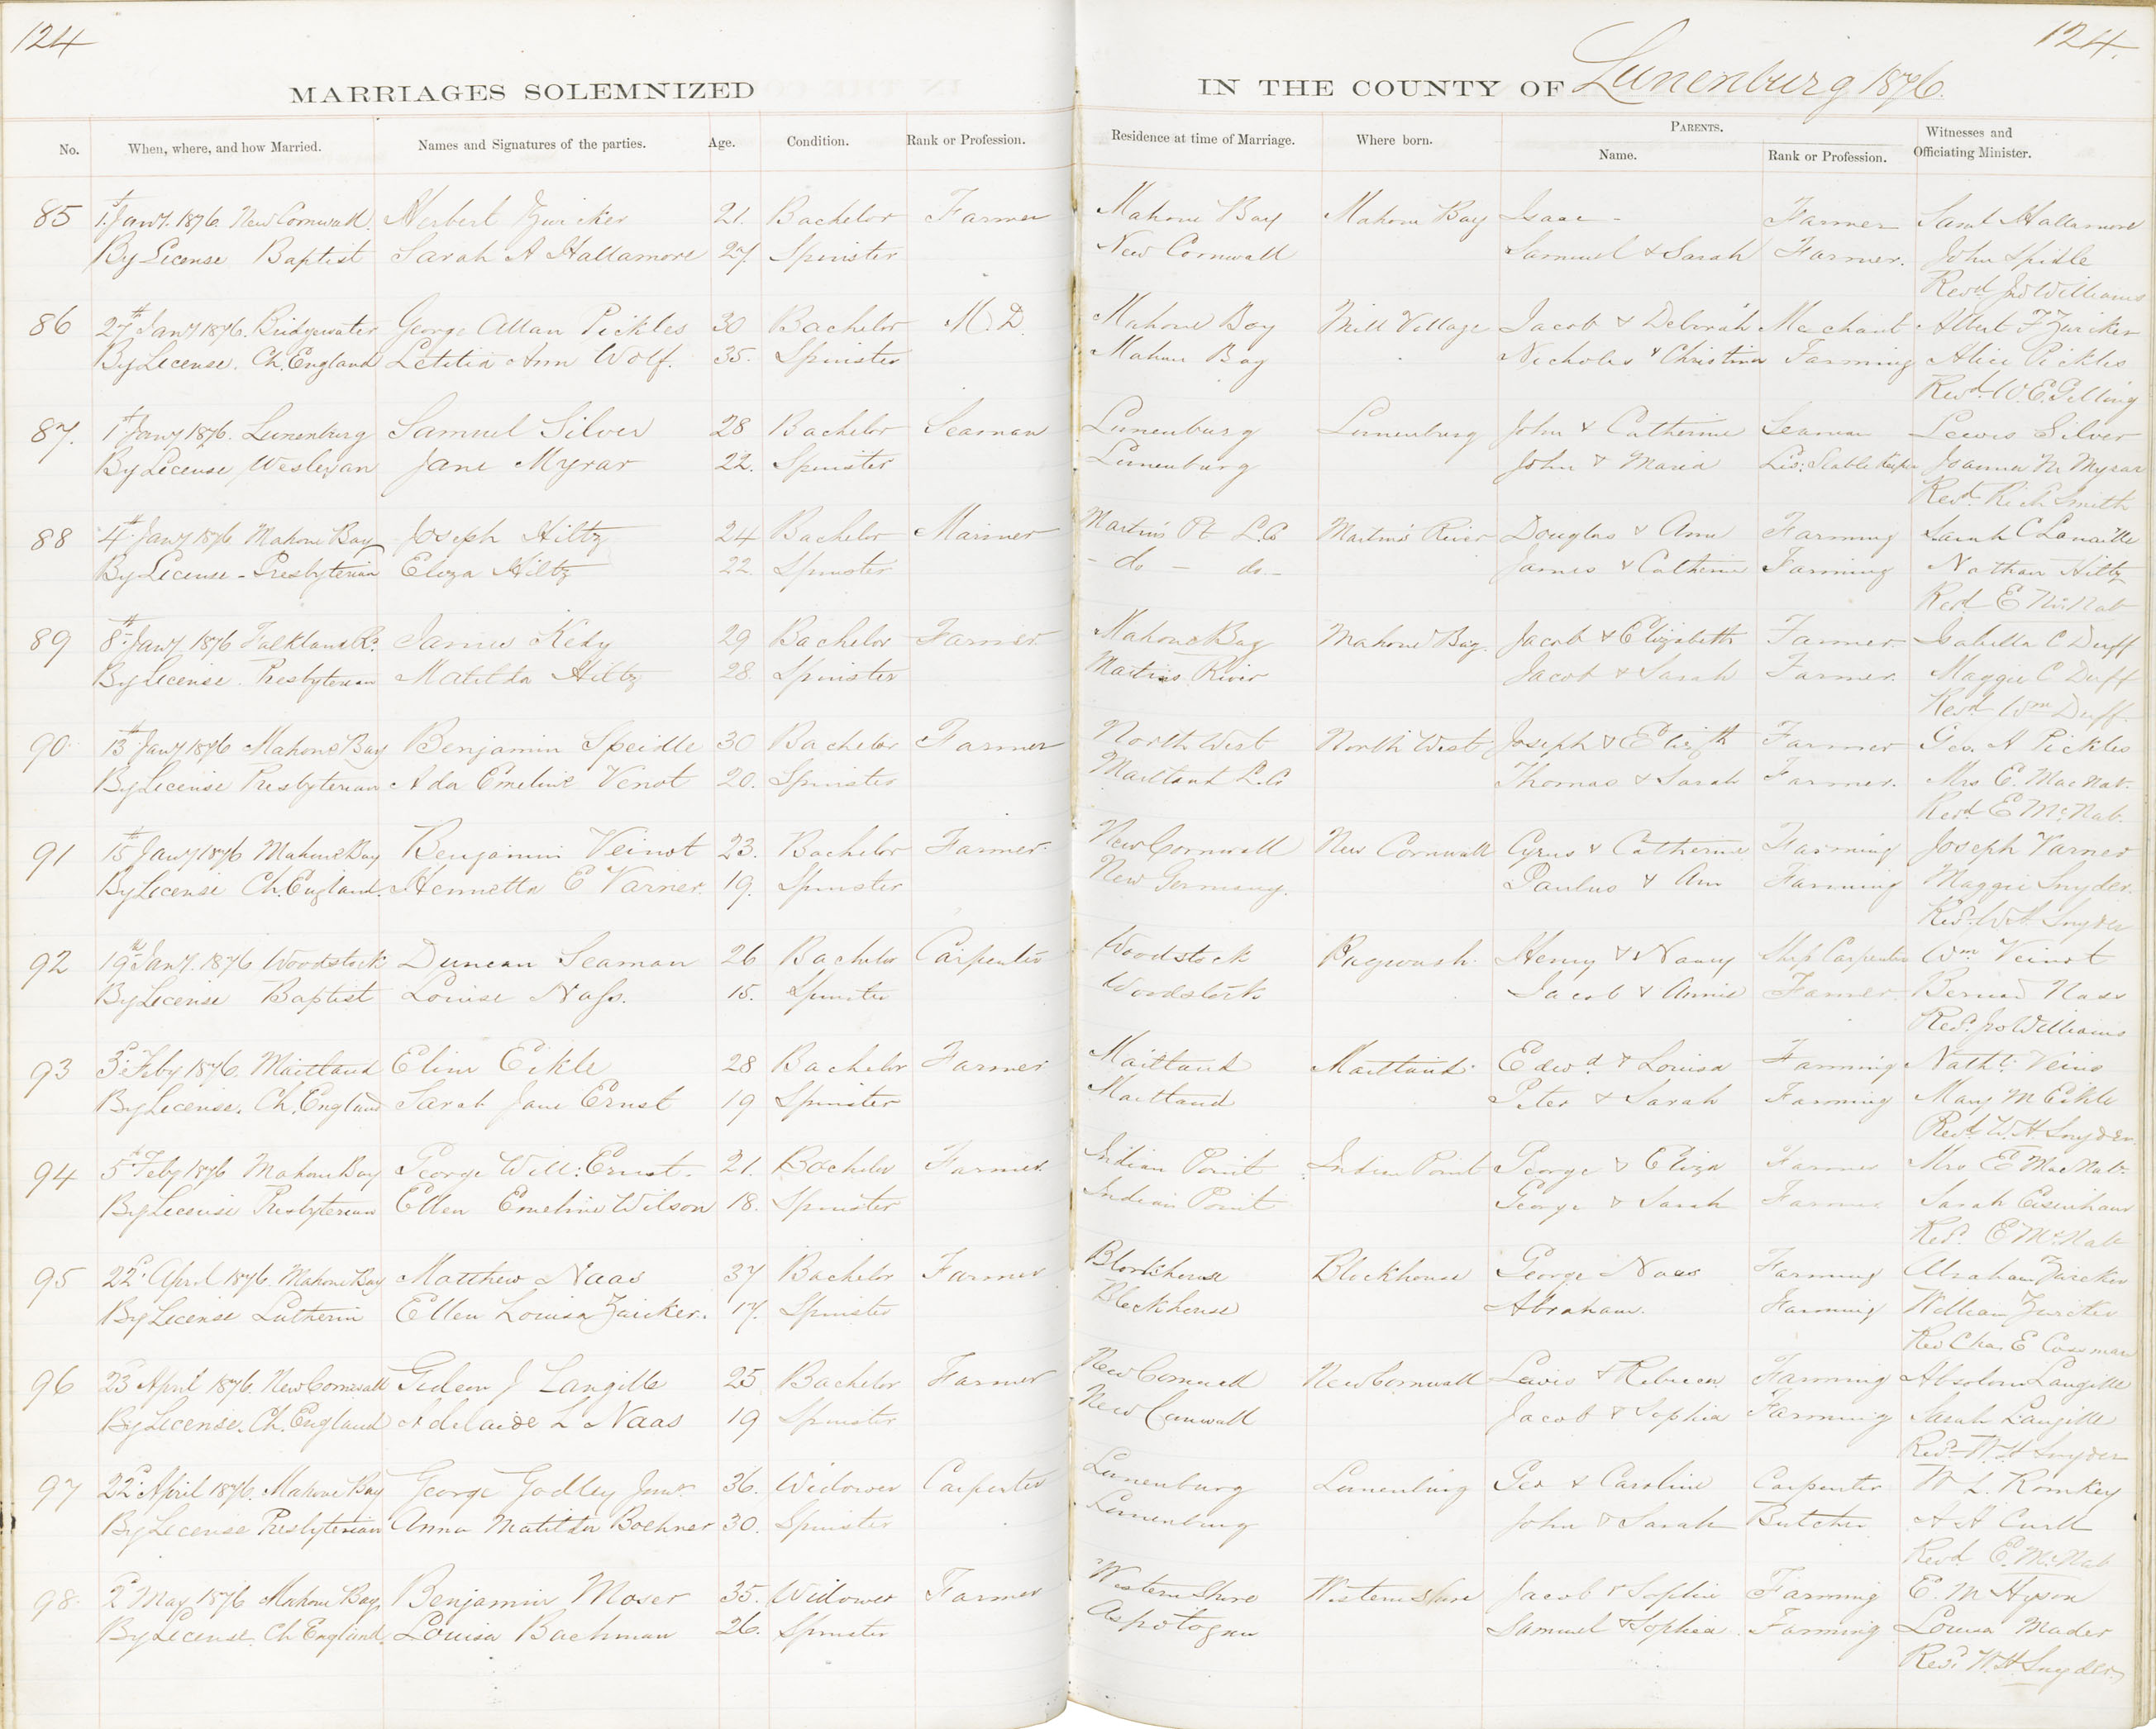 124
124.
MARRIAGES SOLEMNIZED IN THE COUNTY OF Lunenburg 1876.
No. When, where, and how Married. Names and Signatures of the parties. Age. Condition. Rank or Profession. Residence at time of Marriage. Where born. PARENTS. Name. Rank or Profession. Witnesses and Officiating Minister.
85 1st Jany. 1876. New Cornwall. Herbert Zwicker 21. Bachelor Farmer Mahone Bay Mahone Bay Isaac - Farmer Saml Hallamore
By License Baptist Sarah A Hallamore 27. Spinster New Cornwall Samuel & Sarah Farmer. John Spidle
Revd Jno Williams
86 27th Jany 1876. Bridgewater George Allan Pickles 30 Bachelor M.D. Mahone Bay Mill Village Jacob & Deborah Merchant Albert F Zwicker
By License. Ch. England Letitia Ann Wolf. 35. Spinster Mahone Bay Nicholas & Christina Farming Alice Pickles
Revd W.E. Gelling
87. 1st Jany 1876. Lunenburg Samuel Silver 28 Bachelor Seaman Lunenburg Lunenburg John & Catherine Seaman Lewis Silver
By License Wesleyan Jane Myrar 22. Spinster Lunenburg John & Maria Liv: Stable Keeper Joanna M Myrar
Revd Richd Smith
88 4th Jany 1876 Mahone Bay Joseph Hiltz 24 Bachelor Mariner Martin's Pt L.Co Martins River Douglas & Ann Farming Sarah C
By License - Presbyterian Eliza Hiltz 22. Spinster - do - do. - James & Catherine Farming Nathan Hiltz
Revd E McNab
89 8th Jany 1876 Falkland R. James Kedy 29 Bachelor Farmer. Mahone Bay Mahone Bay. Jacob & Elizabeth Farmer. Isabella C Duff
By License. Presbyterian Matilda Hiltz 28. Spinster Martins River Jacob & Sarah Farmer. Maggie C Duff
Revd Wm Duff.
90. 13th Jany 1876 Mahone Bay Benjamin Speidle 30 Bachelor Farmer North West North West Joseph & Elizth Farmer Geo. A Pickles
By License Presbyterian Ada Emeline Venot 20. Spinster Maitland L.Co Thomas & Sarah Farmer. Mrs E. MacNab.
Revd E McNab.
91 15th Jany 1876 Mahone Bay Benjamin Veinot 23. Bachelor Farmer. New Cornwall New Cornwall Cyrus & Catherine Farming Joseph Varner
By License Ch. England. Henrietta E Varner. 19. Spinster New Germany. Paulus & Ann Farming Maggie Snyder.
Revd. W H Snyder
92 19th Jany. 1876 Woodstock Duncan Seaman 26 Bachelor Carpenter Woodstock Pugwash. Henry & Nancy Ship Carpenter Wm Veinot
By License Baptist Louise Nass. 15. Spinster Woodstock Jacob & Annie Farmer. Naas
Revd. Jno Williams
93 3d. Feby 1876. Maitland Eikle 28 Bachelor Farmer Maitland Maitland Edwd. & Louisa Farming Nathl.
By License. Ch. England Sarah Jane Ernst 19 Spinster Maitland Peter & Sarah Farming Mary M Eikle
Revd W.H. Snyder.
94 5th Feby 1876 Mahone Bay George Will: Ernst. 21. Bachelor Farmer. Indian Point Indian Point George & Eliza Farmer Mrs E MacNab.
By License Presbyterian Ellen Emeline Wilson 18. Spinster Indian Point George & Sarah Farmer Sarah Eisenhaur
Revd. E McNab
95 22d. April 1876. Mahone Bay Matthew Naas 37 Bachelor Farmer Blockhouse Blockhouse George Naas Farming Abraham Zwicker
By License Lutherin Ellen Louisa Zwicker. 17. Spinster Blockhouse Abraham. Farming William Zwicker
Rev Chas E Cossman
96 23d April 1876. New Cornwall Gideon J Langille 25 Bachelor Farmer New Cornwall New Cornwall Lewis & Rebecca Farming Absolom Langille
By License. Ch. England Adelaide L Naas 19 Spinster New Cornwall Jacob & Sophia Farming Sarah Langille
Revd. W. H Snyder
97 22d April 1876. Mahone Bay George Godley Junr. 36. Widower Carpenter Lunenburg Lunenburg Geo & Caroline Carpenter W L. Romkey
By License Presbyterian Anna Matilda Boehner 30. Spinster Lunenburg John & Sarah Butcher A H
Revd E. McNab
98. 2d May 1876 Mahone Bay. Benjamin Moser 35. Widower Farmer Western Shore Western Shore Jacob & Sophia Farming E. M Hyson
By License. Ch England. Louisa Bachman 26. Spinster Aspotogan Samuel & Sophia. Farming Louisa Mader
Revd. W. H Snyder.